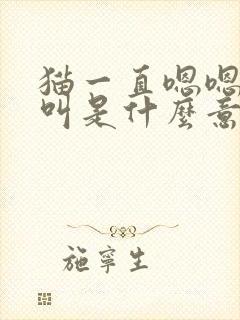 猫一直嗯嗯
叫是什麼意
施寧生